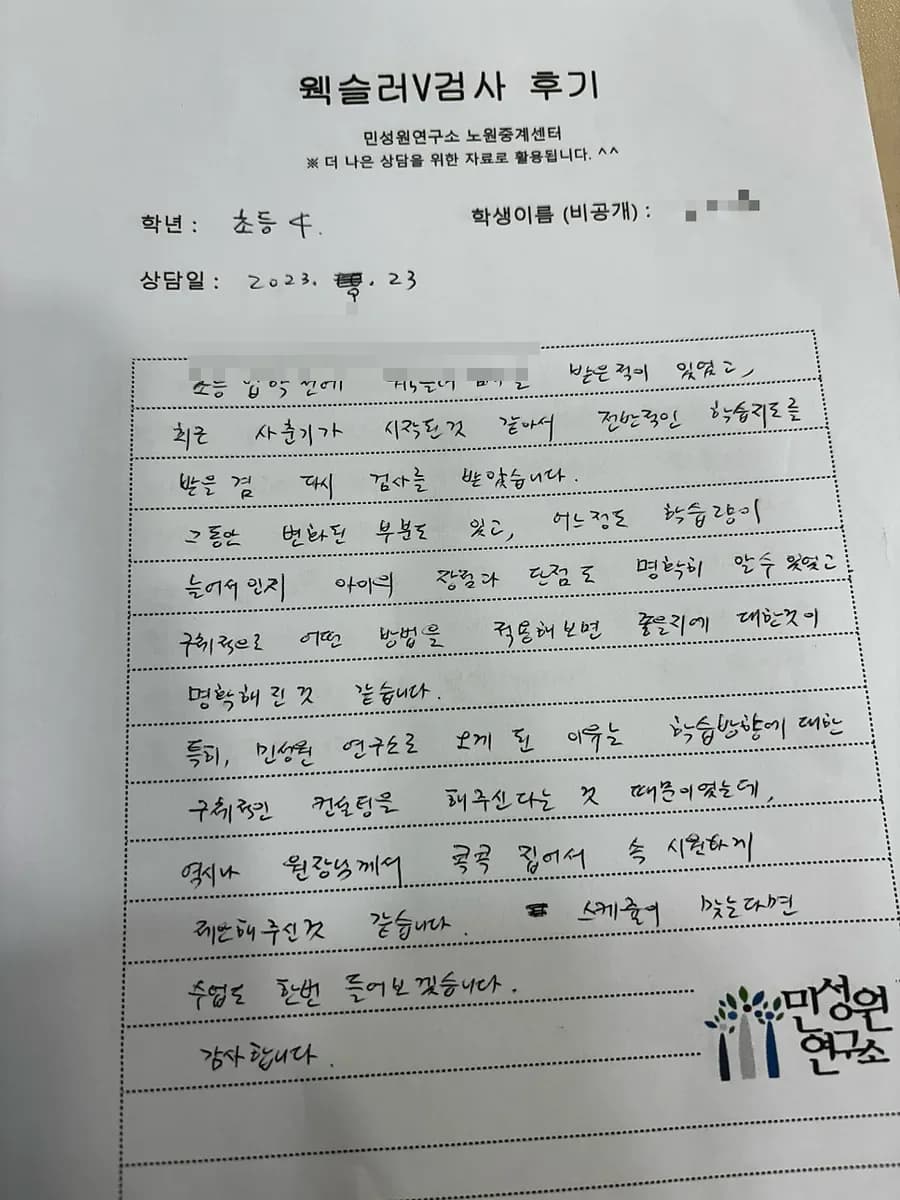 웩슬러V검사 후기
민성원연구소 노원중계센터
※ 더 나은 상담을 위한 자료로 활용됩니다. ^^
학년 : 초등 4. 학생이름 (비공개) :
상담일 : 2023. 9. 23
초등 입학전에 받은적이 있었고,
최근 사춘기가 시작된것 같아서 전반적인 학습지도를
받을 겸 다시 검사를 받았습니다.
그동안 변화된 부분도 있고, 어느정도 학습량이
늘어서인지 아이의 장점과 단점도 명확히 알수 있었고
구체적으로 어떤 방법을 적용해보면 좋을지에 대한것이
명확해진것 같습니다.
특히, 민성원 연구소로 오게 된 이유는 학습방향에 대한
구체적인 컨설팅을 해주신다는 것 때문이었는데,
역시나 원장님께서 콕콕 집어서 속 시원하게
제안해주신것 같습니다. 스케줄이 맞는다면
수업도 한번 들어보겠습니다.
감사합니다.
민성원
연구소